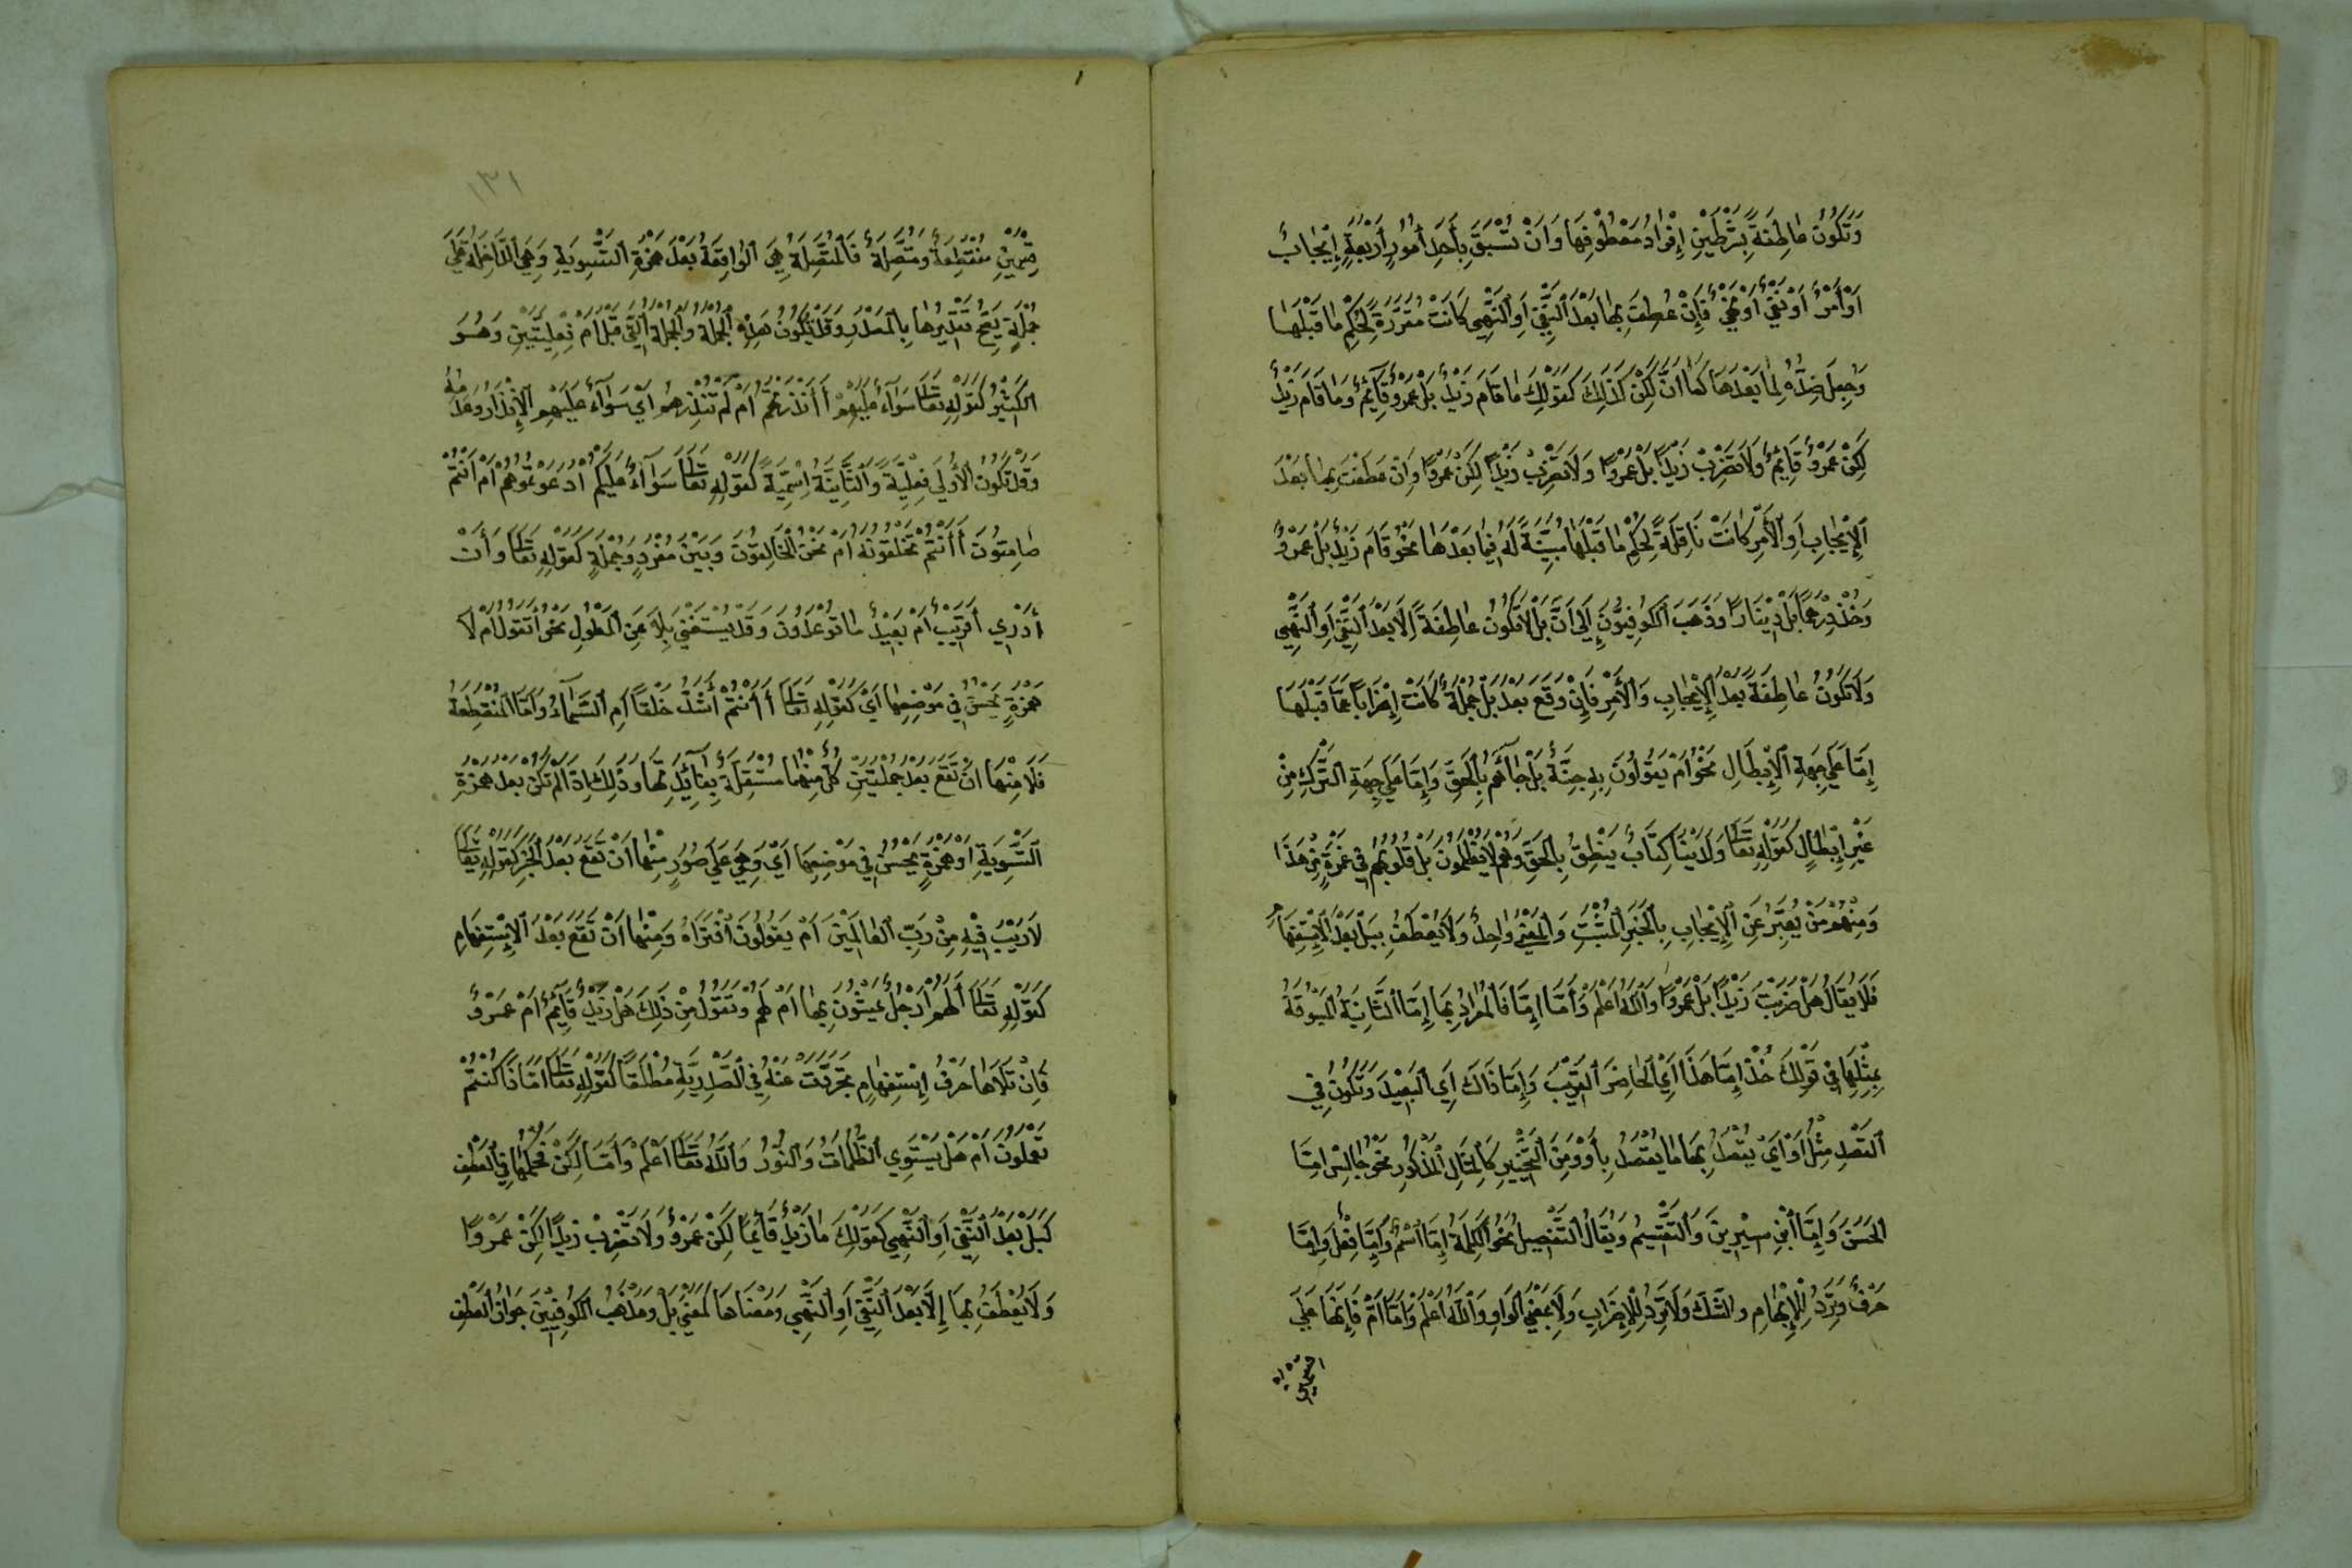 وَتَكُونُ عَاطِفَةً بِشَرْطَيْنِ إِفْرَادُ مَعْطُوفِهَا وَأَنْ تُسْبَقَ بِأَحَدِ أُمُورٍ أَرْبَعَةٍ إِيْجَابٌ
أَوْ أَمْرٌ أَوْ نَفْيٌ أَوْ نَهْيٌ فَإِنْ عُطِفَ بِهَا بَعْدَ النَّفْيِ أَوِ النَّهْيِ كَانَتْ مُقَرِّرَةً لِحُكْمِ مَا قَبْلَهَا
وَجُعِلَ ضِدُّهُ لِمَا بَعْدَهَا كَمَا أَنَّ لَكِنْ كَذَلِكَ كَقَوْلِكَ مَا قَامَ زَيْدٌ بَلْ عَمْرٌو قَآئِمٌ وَمَا قَامَ زَيْدٌ
لَكِنْ عَمْرٌو قَائِمٌ وَلَا تَضْرِبْ زَيْدًا بَلْ عَمْرًوا وَلَا تَضْرِبْ زَيْدًا لَكِنْ عَمْرًوا وَإِنْ عَطَفْتَ بِهَا بَعْدَ
الْإِيْجَابِ أَوِ الْأَمْرِ كَانَتْ نَاقِلَةً لِحُكْمِ مَا قَبْلَهَا مُبَيِّنَةً لَهُ فِيْمَا بَعْدَهَا نَحْوُ قَامَ زَيْدٌ بَلْ عَمْرٌو
وَخُذْ دِرْهَمًا بَلْ دِيْنَارًا وَذَهَبَ الْكُوفِيُّونَ إِلَى أَنَّ بَلْ لَا تَكُونُ عَاطِفَةً إِلَّا بَعْدَ النَّفْيِ أَوِ النَّهْيِ
وَلَا تَكُونُ عَاطِفَةً بَعْدَ الْإِيْجَابِ وَالْأَمْرِ فَإِنْ وَقَعَ بَعْدَ بَلْ جُمْلَةٌ كَانَتْ إِضْرَابًا عَمَّا قَبْلَهَا
إِمَّا عَلَى جِهَةِ الْإِبْطَالِ نَحْوُ أَمْ يَقُولُونَ بِهِ جِنَّةٌ بَلْ جَآءَهُمْ بِالْحَقِّ وَإِمَّا عَلَى جِهَةِ التَّرْكِ مِنْ
غَيْرِ إِبْطَالٍ كَقَوْلِهِ تَعَالَى وَلَدَيْنَا كِتَابٌ يَنْطِقُ بِالْحَقِّ وَهُمْ لَا يُظْلَمُونَ بَلْ قُلُوبُهُمْ فِي غَمْرَةٍ مِنْ هَذَا
وَمِنْهُمْ مَنْ يُعَبِّرُ عَنِ الْإِيْجَابِ بِالْخَبَرِ الْمُثْبَتِ وَالْمَعْنَى وَاحِدٌ وَلَا يُعْطَفُ بِبَلْ بَعْدَ الْإِسْتِفْهَامِ
فَلَا يُقَالُ هَلْ ضَرَبْتَ زَيْدًا بَلْ عَمْرًوا وَاللَّهُ أَعْلَمُ وَأَمَّا إِمَّا فَالْمُرَادُ بِهَا إِمَّا الثَّانِيَةُ الْمَسْبُوقَةُ
بِمِثْلِهَا فِي قَوْلِكَ خُذْ إِمَّا هَذَا أَيِ الْحَاضِرَ الْقَرِيْبَ وَإِمَّا ذَاكَ أَيِ الْبَعِيْدَ وَتَكُونُ فِي
الْقَصْدِ مِثْلُ أَوْ أَيْ يُقْصَدُ بِهَا مَا يُقْصَدُ بِأَوْ وَمِنَ التَّخْيِيْرِ كَالْمِثَالِ الْمَذْكُورِ نَحْوُ جَالِسْ إِمَّا
الْحَسَنَ وَإِمَّا ابْنَ سِيْرِيْنَ وَالتَّقْسِيْمُ وَيُقَالُ التَّفْصِيلُ نَحْوُ الْكَلِمَةُ إِمَّا اسْمٌ وَإِمَّا فِعْلٌ وَإِمَّا
حَرْفٌ وَتَرِدُ لِلْإِبْهَامِ وَالشَّكِّ وَلَا تَرِدُ لِلْإِضْرَابِ وَلَا بِمَعْنَى الْوَاوِ وَاللَّهُ أَعْلَمُ وَأَمَّا أَمْ فَإِنَّهَا عَلَى
قِسْمَيْنِ مُنْقَطِعَةٌ وَمُتَّصِلَةٌ فَالْمُتَّصِلَةُ هِيَ الْوَاقِعَةُ بَعْدَ هَمْزَةِ التَّسْوِيَةِ وَهِيَ الدَّاخِلَةُ عَلَى
جُمْلَةٍ يَصِحُّ تَقْدِيْرُهَا بِالْمَصْدَرِ وَقَدْ تَكُونُ هَذِهِ الْجُمْلَةُ وَالْجُمْلَةُ الَّتِي قَبْلَ أَمْ فِعْلِيَّتَيْنِ وَهُوَ
الْكَثِيْرُ كَقَوْلِهِ تَعَالَى سَوَآءٌ عَلَيْهِمْ أَأَنْذَرْتَهُمْ أَمْ لَمْ تُنْذِرْهُمْ أَيْ سَوَآءٌ عَلَيْهِمُ الْإِنْذَارُ وَعَدَمُهُ
وَقَدْ تَكُونُ الْأُولَى فِعْلِيَّةً وَالثَّانِيَةُ إِسْمِيَّةً كَقَوْلِهِ تَعَالَى سَوَآءٌ عَلَيْكُمْ أَدَعَوْتُمُوهُمْ أَمْ أَنْتُمْ
صَامِتُونَ أَأَنْتُمْ تَخْلُقُونَهُ أَمْ نَحْنُ الْخَالِقُونَ وَبَيْنَ مُفْرَدٍ وَجُمْلَةٍ كَقَوْلِهِ تَعَالَى وَإِنْ
أَدْرِي أَقَرِيْبٌ أَمْ بَعِيْدٌ مَا تُوعَدُونَ وَقَدْ يُسْتَغْنَى بِلَا عَنِ الْمَعْطُوفِ نَحْوُ أَتَقُولُ أَمْ لَا
هَمْزَةٍ يَحْسُنُ فِي مَوْضِعِهَا أَيْ كَقَوْلِهِ تَعَالَى أَأَنْتُمْ أَشَدُّ خَلْقًا أَمِ السَّمَآءُ وَأَمَّا الْمُنْقَطِعَةُ
فَلَا مِنْهَا أَنْ تَقَعَ بَعْدَ جُمْلَتَيْنِ كُلٌّ مِنْهُمَا مُسْتَقِلَّةٌ بِفَائِدَتِهَا وَذَلِكَ إِذَا لَمْ تَكُنْ بَعْدَ هَمْزَةِ
التَّسْوِيَةِ أَوْ هَمْزَةٍ يَحْسُنُ فِي مَوْضِعِهَا أَيْ وَهِيَ عَلَى صُوَرٍ مِنْهَا أَنْ تَقَعَ بَعْدَ الْخَبَرِ كَقَوْلِهِ تَعَالَى
لَا رَيْبَ فِيْهِ مِنْ رَبِّ الْعَالَمِيْنَ أَمْ يَقُولُونَ افْتَرَاهُ وَمِنْهَا أَنْ تَقَعَ بَعْدَ الْإِسْتِفْهَامِ
كَقَوْلِهِ تَعَالَى أَلَهُمْ أَرْجُلٌ يَمْشُونَ بِهَا أَمْ لَهُمْ وَتَقُولُ مِنْ ذَلِكَ هَلْ زَيْدٌ قَآئِمٌ أَمْ عَمْرٌو
فَإِنْ تَلَاهَا حَرْفُ إِسْتِفْهَامٍ تَجَرَّدَتْ عَنْهُ فِي الصَّدْرِيَّةِ مُطْلَقًا كَقَوْلِهِ تَعَالَى أَمَّاذَا كُنْتُمْ
تَعْمَلُونَ أَمْ هَلْ يَسْتَوِي الظُّلُمَاتُ وَالنُّورُ وَاللَّهُ تَعَالَى أَعْلَمُ وَأَمَّا لَكِنْ فَحُكْمُهَا فِي الْعَطْفِ
كَبَلْ بَعْدَ النَّفْيِ أَوِ النَّهْيِ كَقَوْلِكَ مَا زَيْدٌ قَائِمًا لَكِنْ عَمْرٌو وَلَا تَضْرِبْ زَيْدًا لَكِنْ عَمْرًوا
وَلَا يُعْطَفُ بِهَا إِلَّا بَعْدَ النَّفْيِ أَوِ النَّهْيِ وَمَعْنَاهَا كَمَعْنَى بَلْ وَمَذْهَبُ الْكُوفِيِّيْنَ جَوَازُ الْعَطْفِ